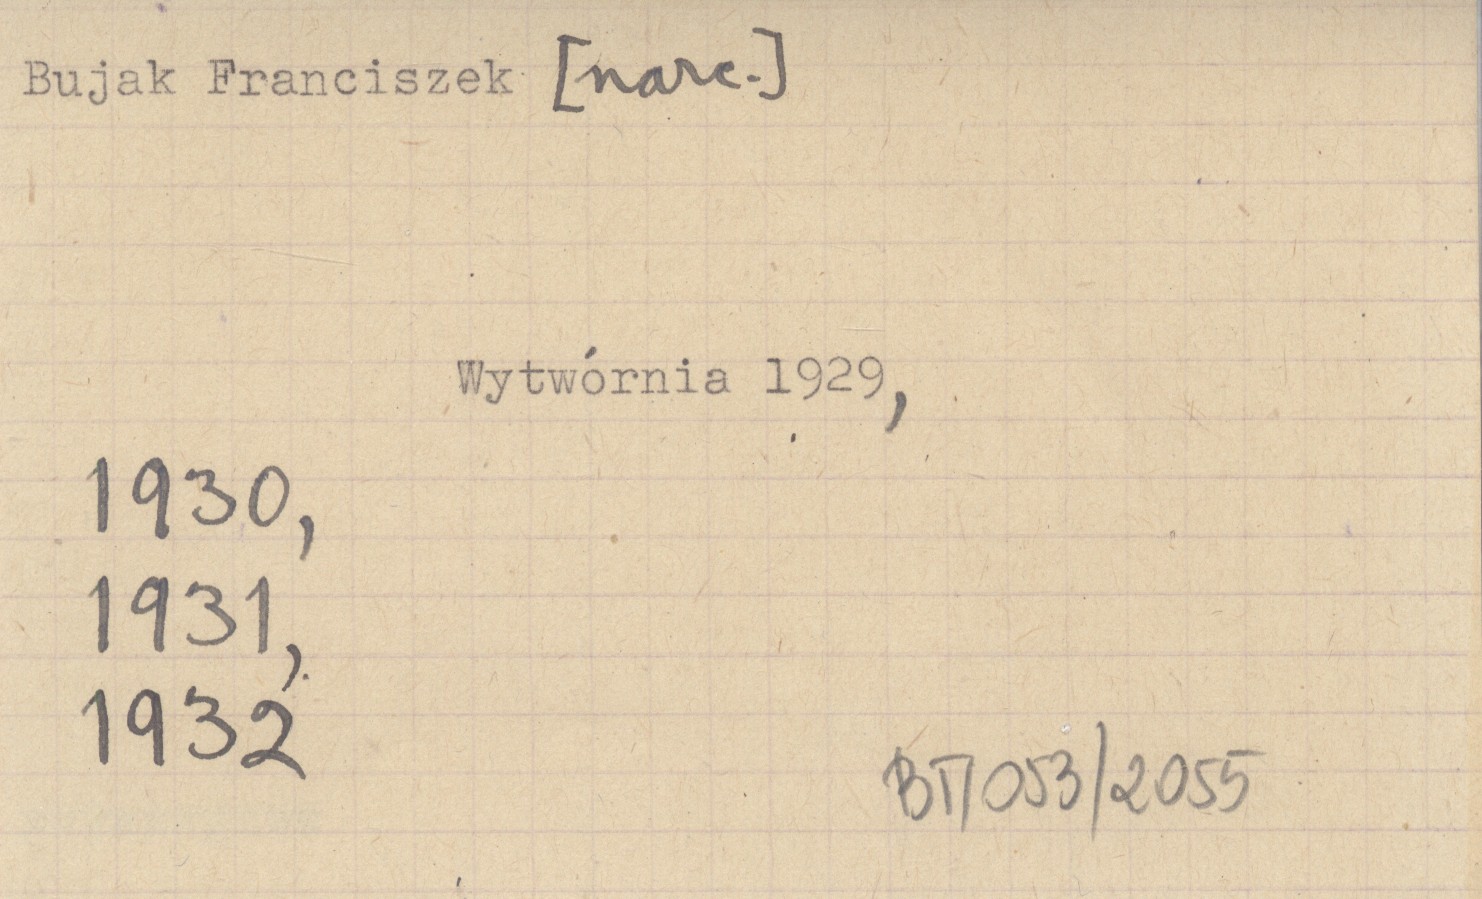 Bujak Franciszek [narc.]
Wytwórnia 1929,
1930,
1931,
1932
BT/053/2055